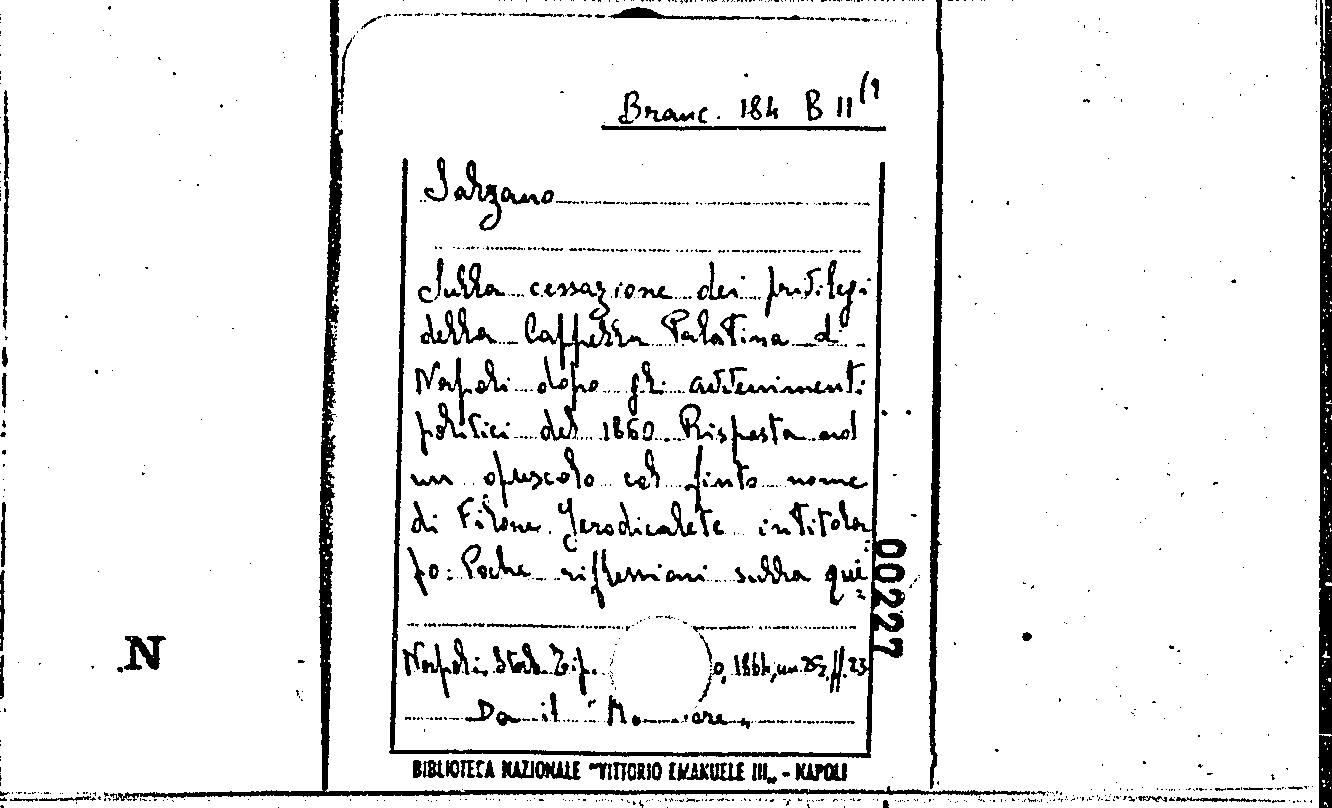 Branc. 184 B 11(9
Salzano
Sulla cessazione dei privilegi
della Cappella Palatina di
Napoli dopo gli avvenimenti
politici del 1860 Risposta ad
un opuscolo col finto nome
di Filone Jerodicalete intitola
to: Poche riflessioni sulla qui
Napoli, Stab. Tip. o, 1864, in 8º, pp. 23
Da il "Mo are„
BIBLIOTECA NAZIONALE "VITTORIO EMANUELE III„ - NAPOLI
00227
N